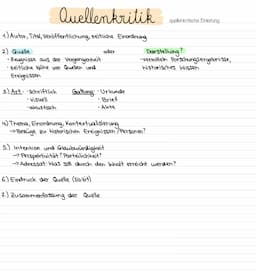 Quellenkritik
quellenkritische Einleitung
1) Autor, Titel, Veröffentlichung, zeitliche Einordnung
2) Quelle oder Darstellung?
- Zeugnisse aus der Vergangenheit - vermitteln Forschungsergebnisse,
- zeitliche Nähe von Quellen und historisches Wissen
Ereignissen
3) Art: - schriftlich Gattung: - Urkunde
- visuell - Brief
- akustisch - Akte
4) Thema, Einordnung, Kontextualisierung
→ Bezüge zu historischen Ereignissen / Personen?
5) Intention und Glaubwürdigkeit
→ Perspektivität? Parteilichkeit?
→ Adressat: Was soll durch den Inhalt erreicht werden?
6) Eindruck der Quelle
7) Zusammenfassung der Quelle